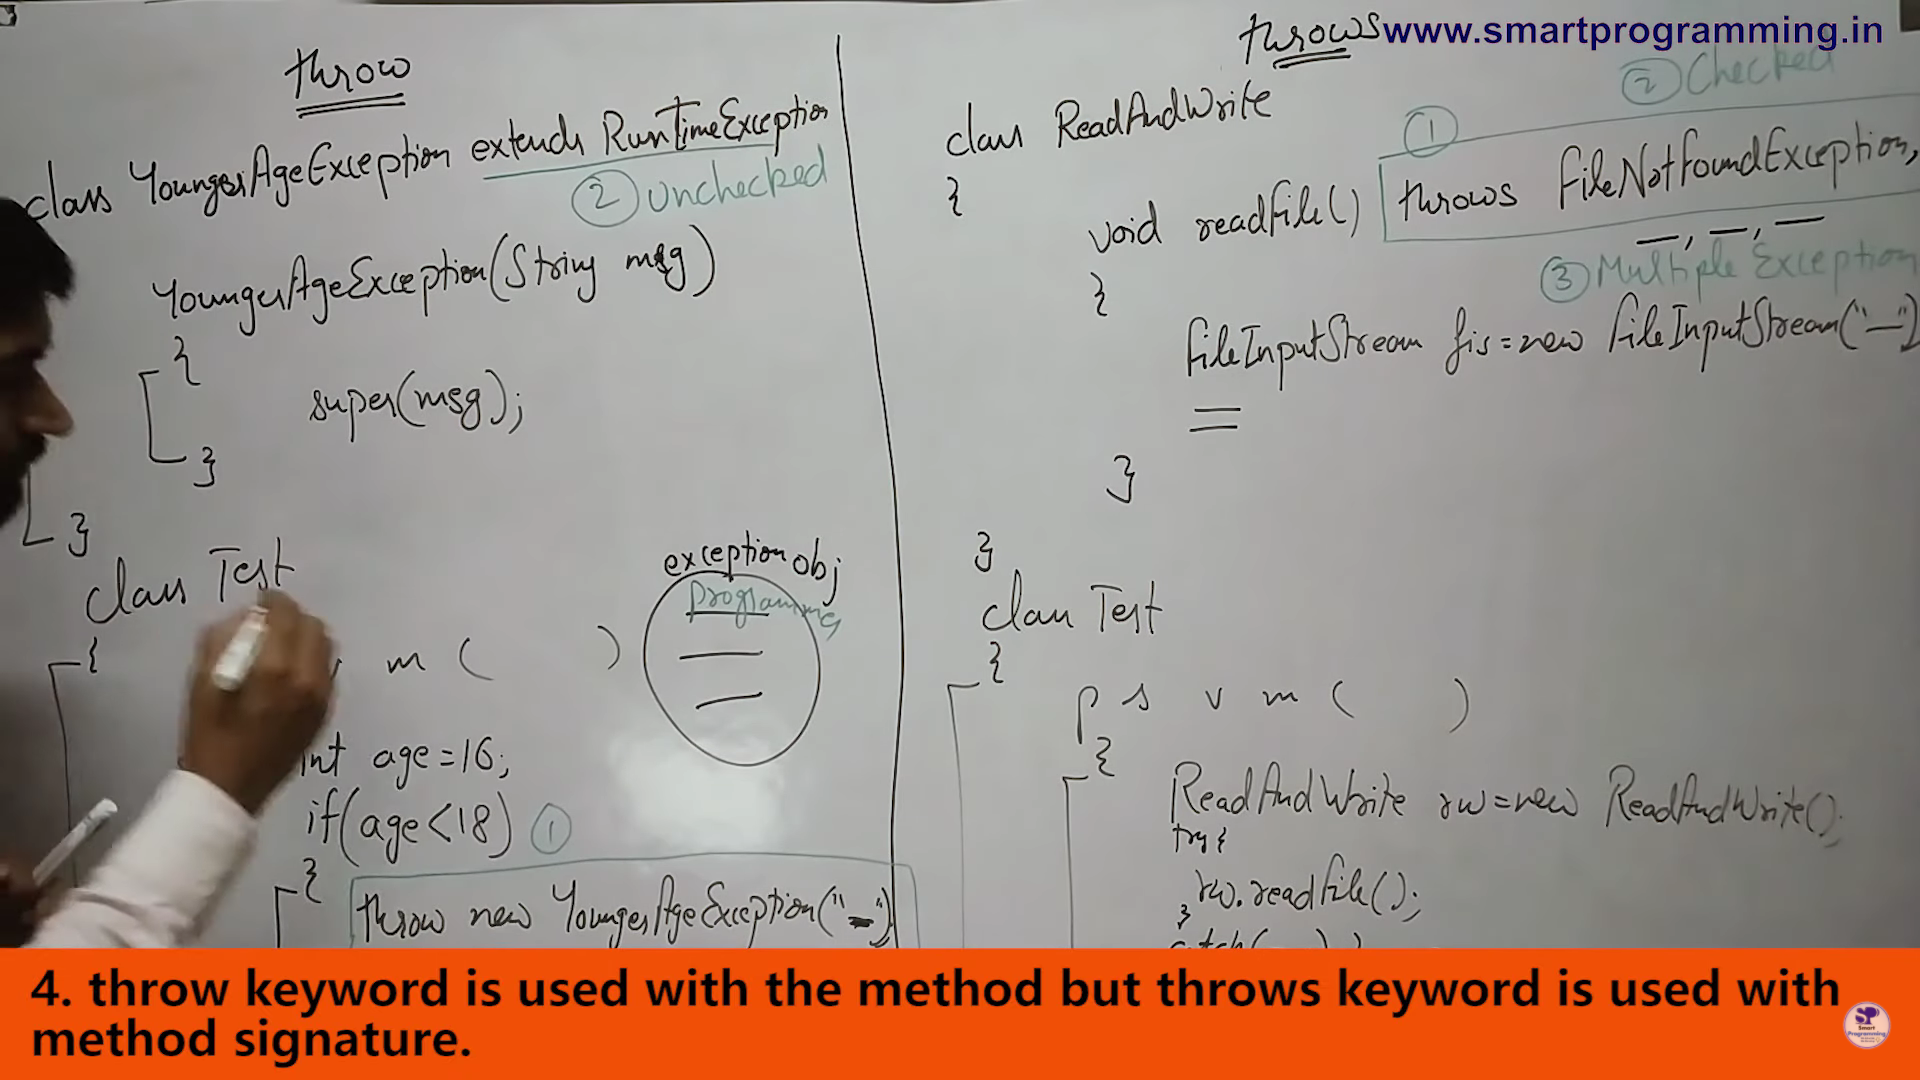 throw
class YoungerAgeException extends RunTimeException
② Unchecked
YoungerAgeException(String msg)
{
super(msg);
}
}
class Test
{
v m ( )
int age=16;
if(age<18) ①
{
throw new YoungerAgeException("—")
exception obj
Programmer
throws
www.smartprogramming.in
② Checked
class ReadAndWrite
①
{
void readFile() throws FileNotFoundException,
—, —, —
③ Multiple Exception
{
FileInputStream fis=new FileInputStream("—")
}
}
class Test
{
p s v m ( )
{
ReadAndWrite rw=new ReadAndWrite();
try{
rw.readFile();
}
4. throw keyword is used with the method but throws keyword is used with
method signature.
SP
Smart
Programming